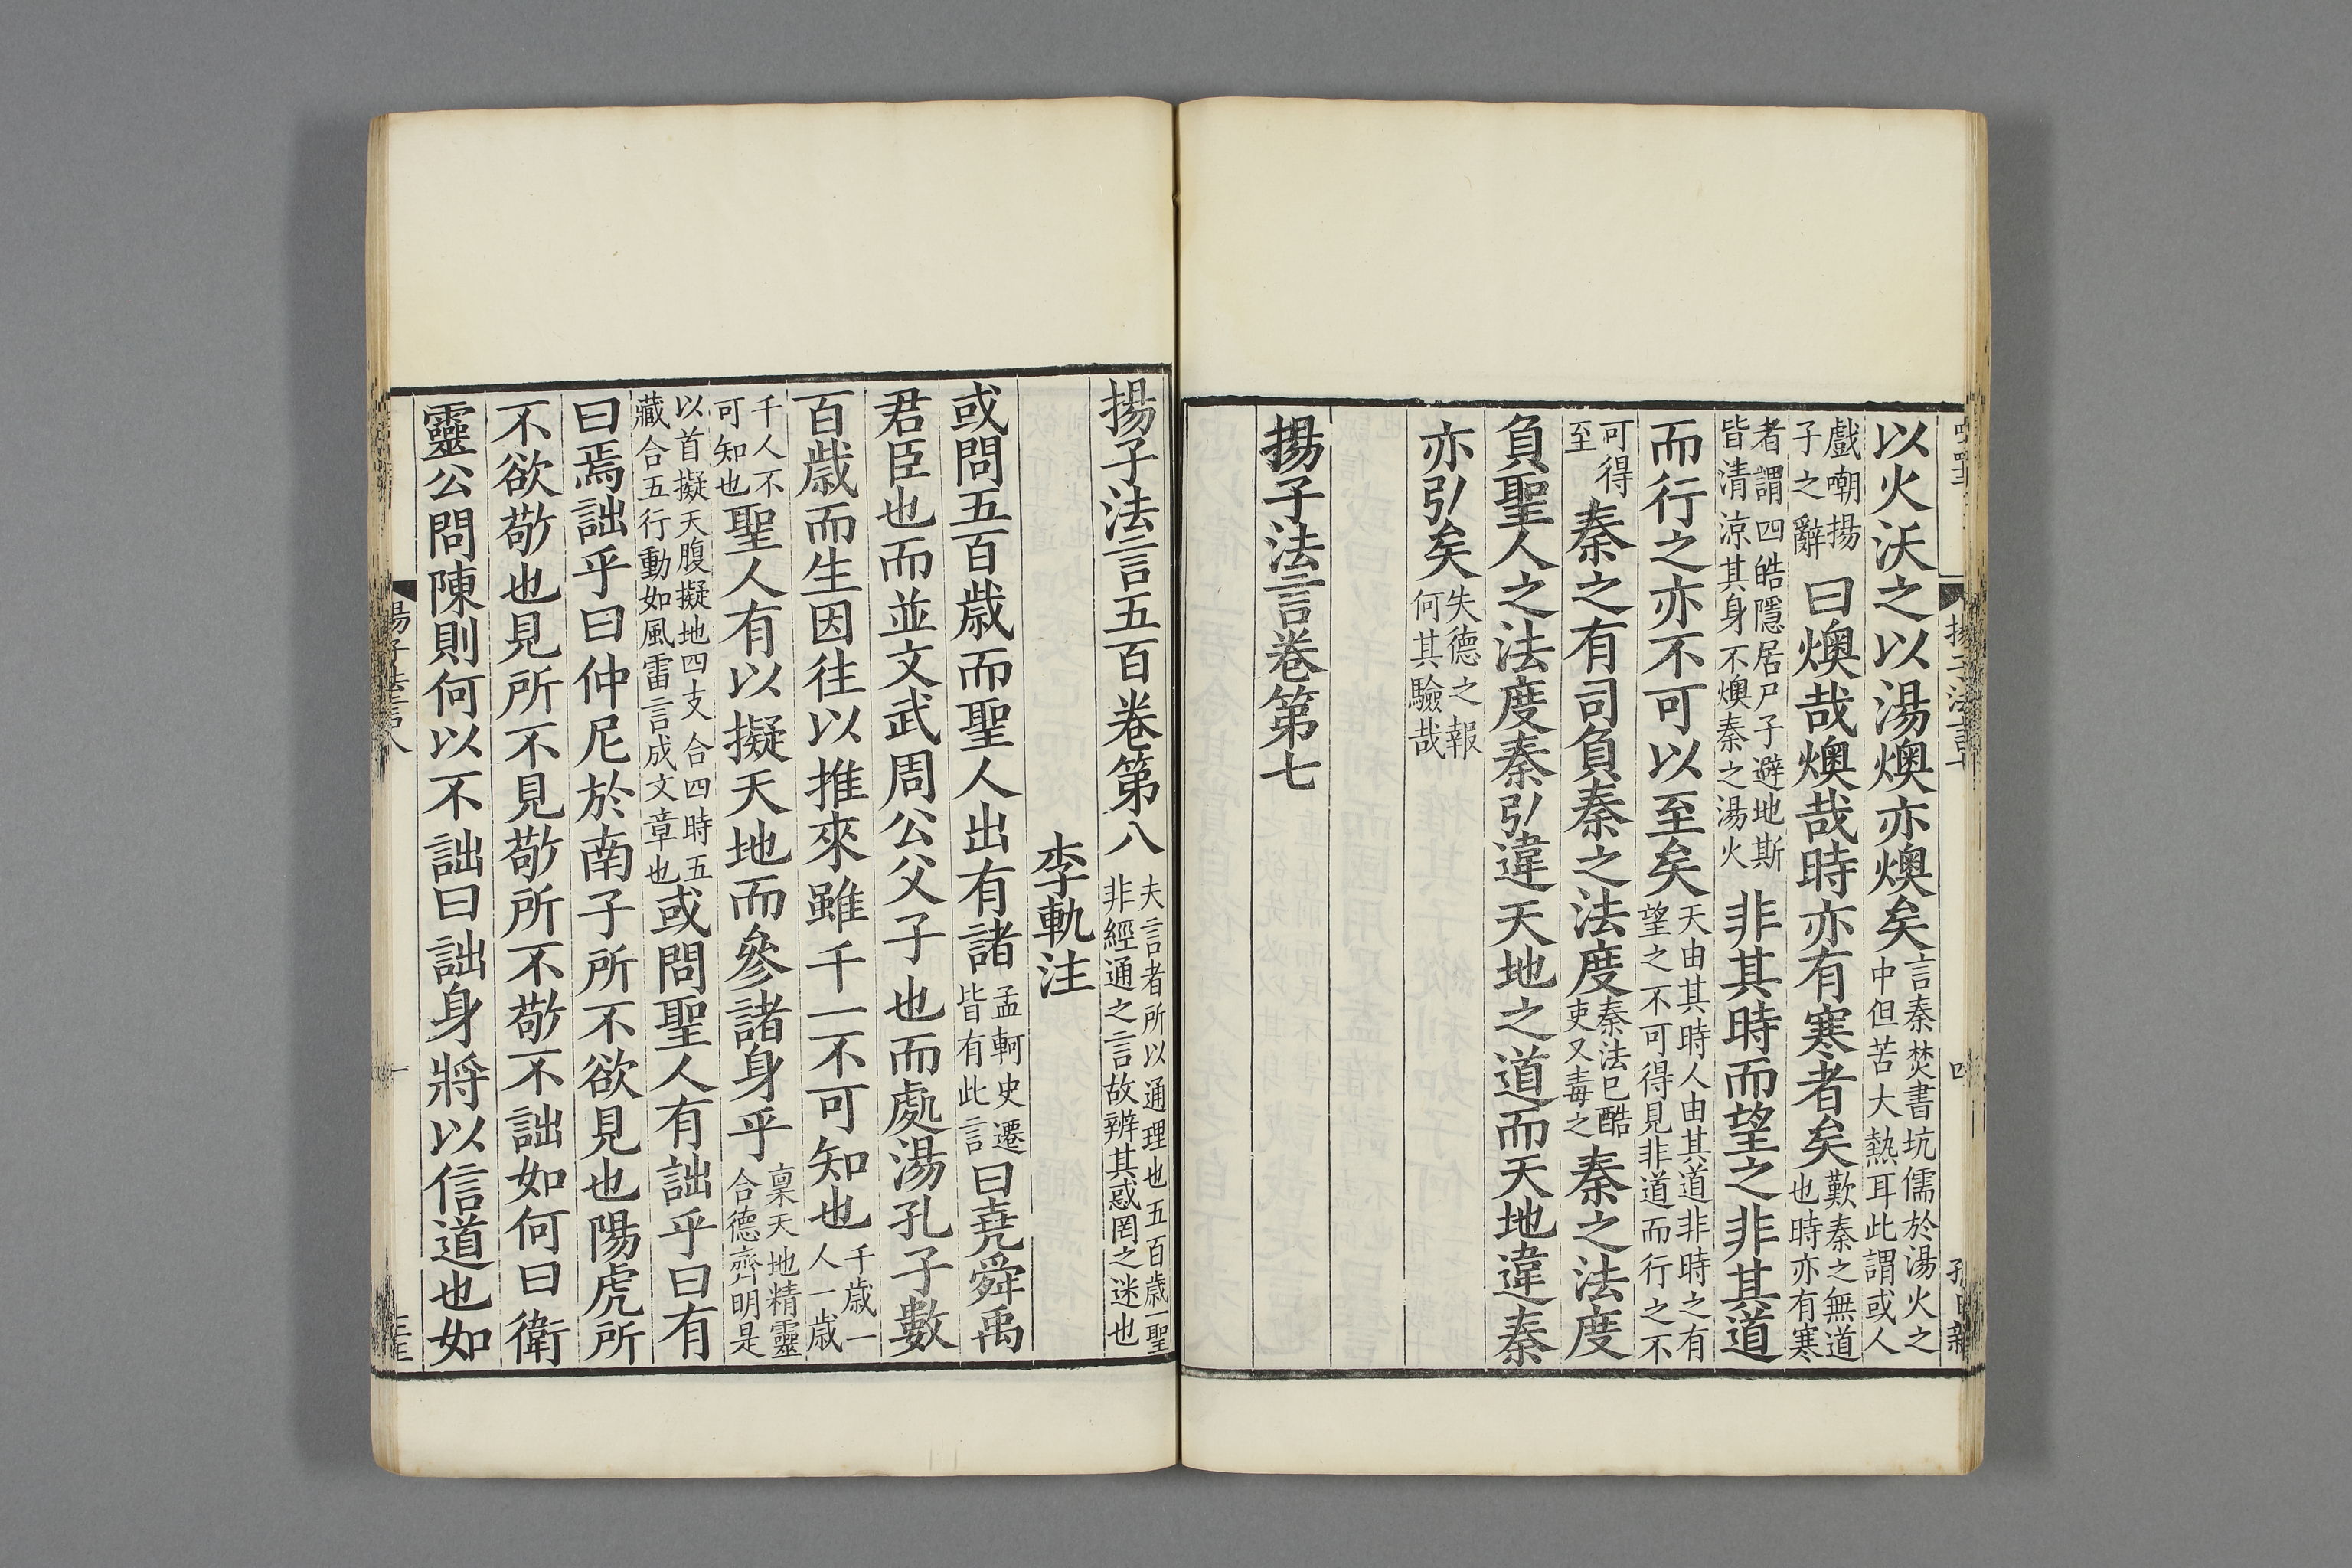 以火沃之以湯燠亦燠矣言秦焚書坑儒於湯火之中但苦大熱耳此謂或人
戲嘲揚子之辭曰燠哉燠哉時亦有寒者矣歎秦之無道也時亦有寒
者謂四皓隱居尸子避地斯皆清涼其身不燠秦之湯火非其時而望之非其道
而行之亦不可以至矣天由其時人由其道非時之有望之不可得見非道而行之不
可得至秦之有司負秦之法度秦法已酷吏又毒之秦之法度
負聖人之法度秦弘違天地之道而天地違秦
亦弘矣失德之報何其驗哉
揚子法言卷第七
揚子法言五百卷第八夫言者所以通理也五百歲一聖非經通之言故辨其惑罔之迷也
李軌注
或問五百歲而聖人出有諸孟軻史遷皆有此言曰堯舜禹
君臣也而並文武周公父子也而處湯孔子數
百歲而生因往以推來雖千一不可知也千歲一人一歲
千人不可知也聖人有以擬天地而參諸身乎稟天地精靈合德齊明是
以首擬天腹擬地四支合四時五藏合五行動如風雷言成文章也或問聖人有詘乎曰有
曰焉詘乎曰仲尼於南子所不欲見也陽虎所
不欲敬也見所不見敬所不敬不詘如何曰衛
靈公問陳則何以不詘曰詘身將以信道也如